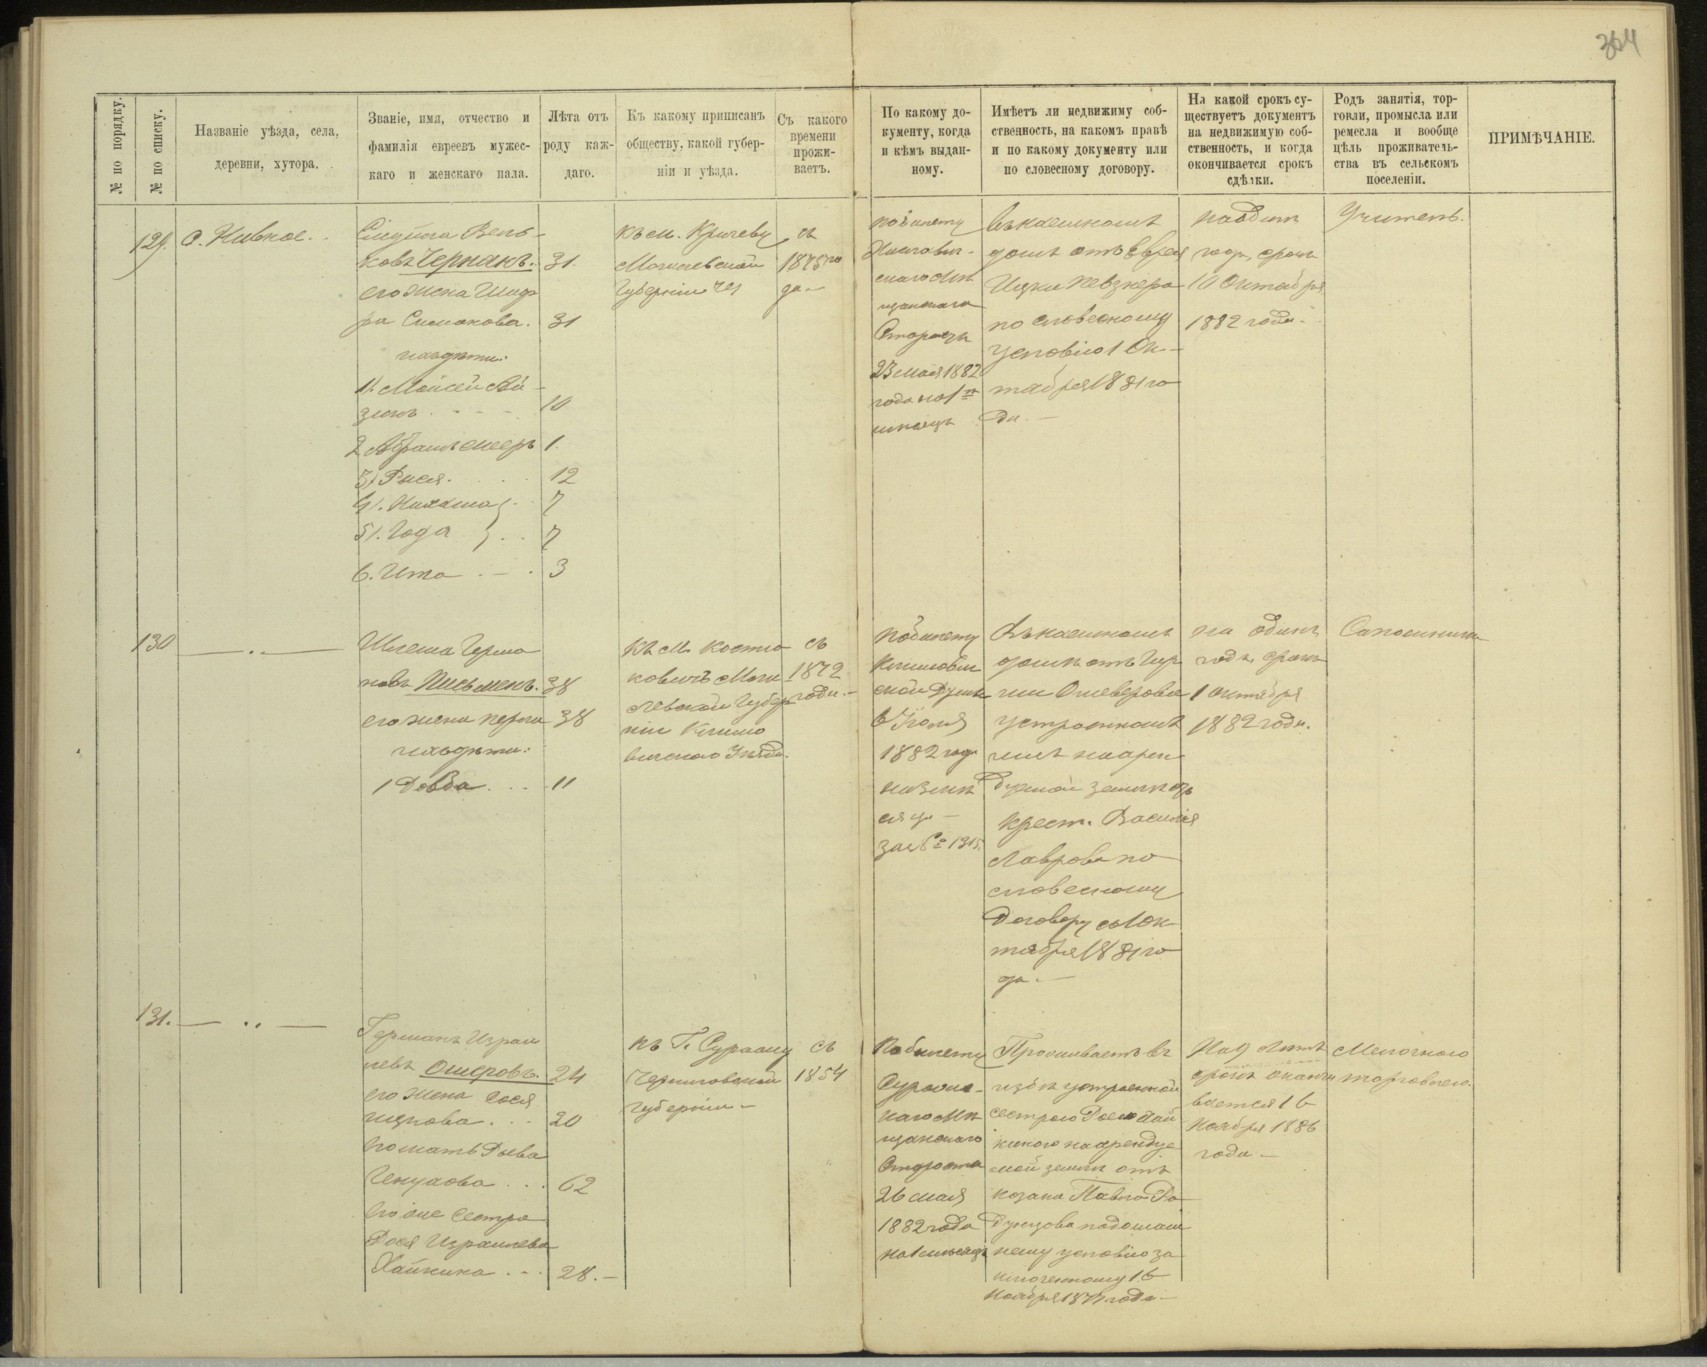 364
№ по порядку.
№ по списку.
Названіе уѣзда, села,
деревни, хутора.
Званіе, имя, отчество и
фамилія евреевъ мужес-
каго и женскаго пала.
Лѣта отъ
роду каж-
даго.
Къ какому приписанъ
обществу, какой губер-
ніи и уѣзда.
Съ какого
времени
прожи-
ваетъ.
По какому до-
кументу, когда
и кѣмъ выдан-
ному.
Имѣетъ ли недвижиму соб-
ственность, на какомъ правѣ
и по какому документу или
по словесному договору.
На какой срокъ су-
ществуетъ документъ
на недвижимую соб-
ственность, и когда
окончивается срокъ
сдѣлки.
Родъ занятія, тор-
говли, промысла или
ремесла и вообще
цѣль проживатель-
ства въ сельскомъ
поселеніи.
ПРИМѢЧАНІЕ.
129.
С. Кивное.
ковъ Чернакъ. 31
его жена
ра Симонова. 31
ихъ дѣти:
1. Мойсей
10
2 1
3) Рися. 12
4). 7
5). Года 7
6. Ита 3
къ м. Кричеву
Могилевской
Губерніи
съ
1875 го
да
по билету
скаго Мѣ
щанскаго
Старосты
23 мая 1882
года на 1
мѣсяцъ
въ наемномъ
домѣ отъ Еврея
Ицки Певзнера
по словесному
условію 1 Ок-
тября 1881 го
да.
на одинъ
годъ, срокъ
10 Октября
1882 года.
Учитель.
130
Шлема Герма
новъ Письменъ. 38
его жена 38
ихъ дѣти:
1 Довба 11
къ М. Костю
ковичъ Моги-
левской Губер
ніи Климо
вичскаго Уѣзда.
съ
1872
года.
по билету
Климович
ской Думы
6 Іюля
1882 года
за № 1315.
въ наемномъ
домѣ отъ Гир
ши Ошеерова
устроенномъ
имъ на арен
дуемой земли изъ
Крест. Василія
Лаврова по
словесному
договору съ 1 Ок
тября 1881 го
да.
на одинъ
годъ, срокъ
1 Октября
1882 года.
Сапожникъ
131.
Германъ Израи
левъ Ошеровъ. 24
его жена Гося
20
его мать Рыва
62
его же сестра
Рося Израилева
Хайкина 28.
къ Г. Суражу
Черниговской
Губерніи
съ
1854
По билету
Суражс-
каго Мѣ
щанскаго
Старосты
26 мая
1882 года
на 1 мѣсяцъ
Проживаетъ въ
избѣ устроенной
сестрою Росею Хай
киною на арендуе
мой земли отъ
козака Павла Ра
дунцова по домаш
нему условію за
ключенному 16
Ноября 1877 года
На 9 лѣтъ
срокъ оканчи
вается 16
Ноября 1886
года
Мелочною
торговлею.